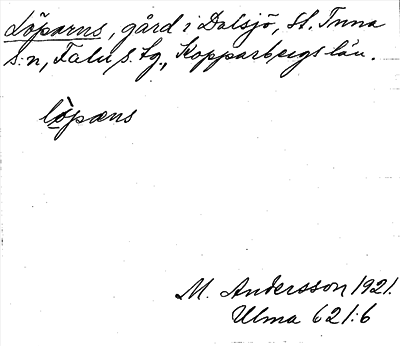 Löparns, gård i Dalsjö, St. Tuna
s:n, Falu s. tg., Kopparbergs län.
lòpæns
M. Andersson 1921.
Ulma 621:6